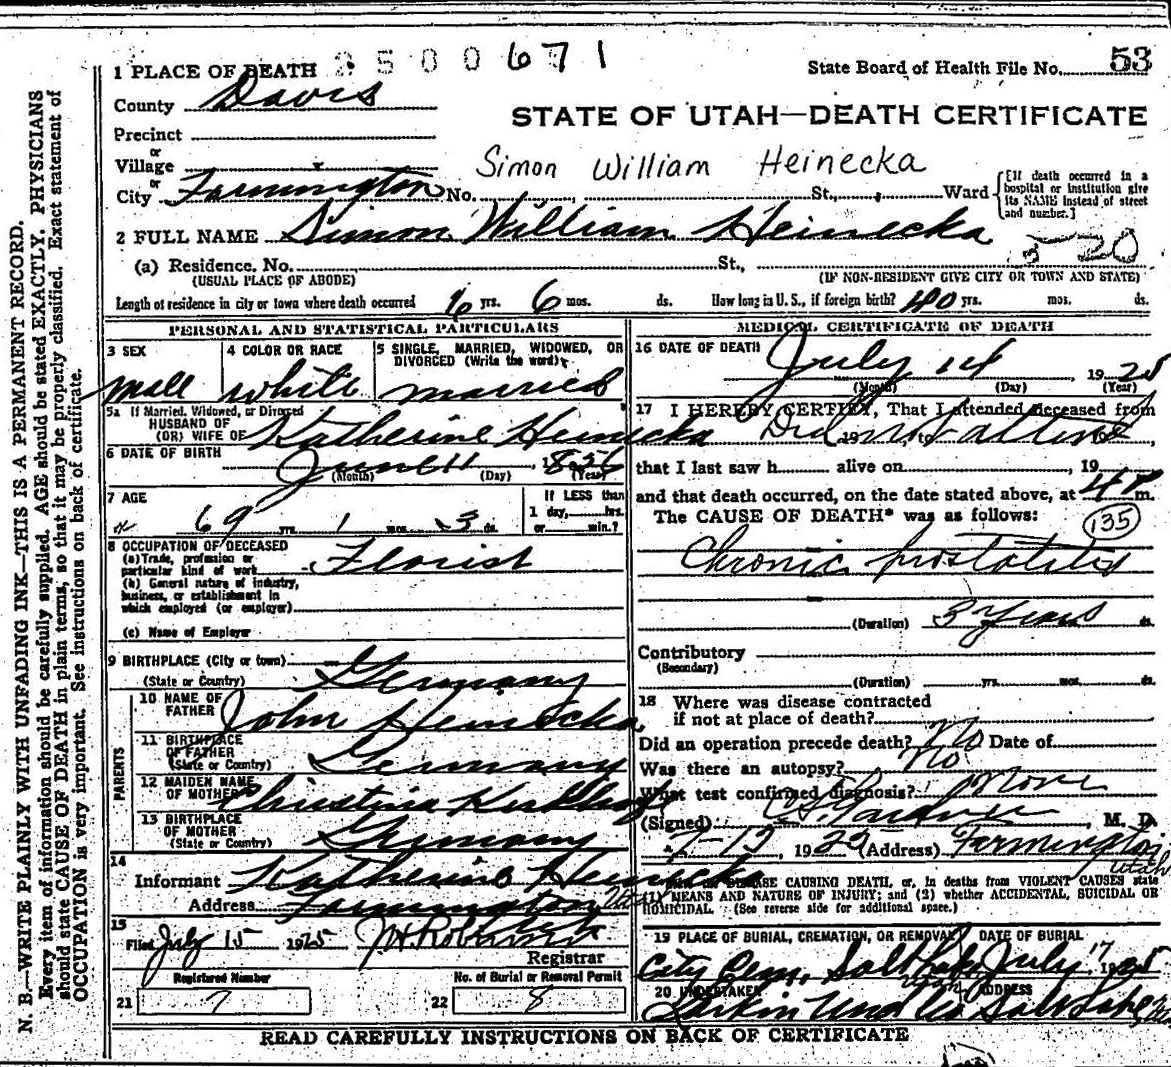 1 PLACE OF DEATH 2500671
State Board of Health File No. 53
County Davis
STATE OF UTAH—DEATH CERTIFICATE
Precinct
or
Village
Simon William Heinecka
or
City Farmington No. St., Ward
[If death occurred in a hospital or institution give its NAME instead of street and number.]
2 FULL NAME Simon William Heinecka
5-20
(a) Residence. No. St.,
(USUAL PLACE OF ABODE) (IF NON-RESIDENT GIVE CITY OR TOWN AND STATE)
Length of residence in city or town where death occurred 16 yrs. 6 mos. ds. How long in U.S., if foreign birth? 40 yrs. mos. ds.
PERSONAL AND STATISTICAL PARTICULARS
3 SEX 4 COLOR OR RACE 5 SINGLE, MARRIED, WIDOWED, OR DIVORCED (Write the word)
male white married
5a If Married, Widowed, or Divorced
HUSBAND OF
(OR) WIFE OF Katherine Heinecka
6 DATE OF BIRTH June 11 1856
(Month) (Day) (Year)
7 AGE
69 yrs. 1 mos. 3 ds.
If LESS than
1 day, hrs.
or min.?
8 OCCUPATION OF DECEASED
(a) Trade, profession or
particular kind of work Florist
(b) General nature of industry,
business, or establishment in
which employed (or employer)
(c) Name of Employer
9 BIRTHPLACE (City or town)
(State or Country) Germany
PARENTS
10 NAME OF
FATHER John Heinecka
11 BIRTHPLACE
OF FATHER
(State or Country) Germany
12 MAIDEN NAME
OF MOTHER Christina
13 BIRTHPLACE
OF MOTHER
(State or Country) Germany
14
Informant Katherine Heinecka
Address Farmington Utah
15
Filed July 15 1925
Registrar
Registered Number No. of Burial or Removal Permit
21 7 22 8
MEDICAL CERTIFICATE OF DEATH
16 DATE OF DEATH July 14 1925
(Month) (Day) (Year)
17 I HEREBY CERTIFY, That I attended deceased from
Did not attend
that I last saw h alive on , 19
and that death occurred, on the date stated above, at 4 P m.
The CAUSE OF DEATH* was as follows:
135
Chronic prostatitis
(Duration) 3 years ds.
Contributory
(Secondary)
(Duration) yrs. mos. ds.
18 Where was disease contracted
if not at place of death?
Did an operation precede death? No Date of
Was there an autopsy? No
What test confirmed diagnosis? None
(Signed) , M. D.
, 19 (Address) Farmington Utah
DISEASE CAUSING DEATH, or, in deaths from VIOLENT CAUSES state
(1) MEANS AND NATURE OF INJURY; and (2) whether ACCIDENTAL, SUICIDAL OR
HOMICIDAL. (See reverse side for additional space.)
19 PLACE OF BURIAL, CREMATION, OR REMOVAL DATE OF BURIAL
City Cem, Salt Lake July 17 1925
20 UNDERTAKER ADDRESS
Larkin Und Co Salt Lake
READ CAREFULLY INSTRUCTIONS ON BACK OF CERTIFICATE
N. B.—WRITE PLAINLY WITH UNFADING INK—THIS IS A PERMANENT RECORD.
Every item of information should be carefully supplied. AGE should be stated EXACTLY. PHYSICIANS
should state CAUSE OF DEATH in plain terms, so that it may be properly classified. Exact statement of
OCCUPATION is very important. See instructions on back of certificate.